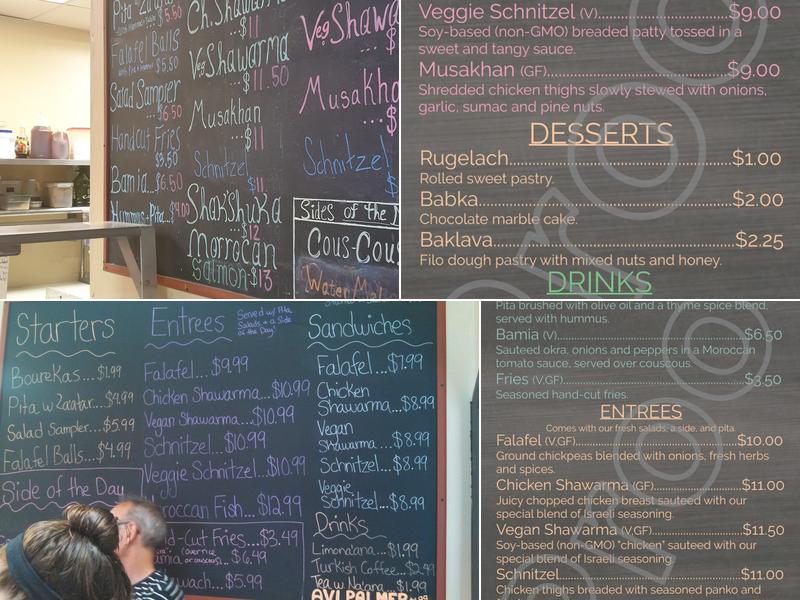 Pita w/Zaatar
$5.50
Falafel Balls
$5.50
Salad Sampler
$6.50
Handcut Fries
$3.50
Bamia...$6.50
Hummus + Pita...$4.00
Ch.Shawarma
$11
Veg Shawarma
...$11.50
Musakhan
...$11
Schnitzel
...$11
Shak'Shuka
$12
Morrocan
Salmon $13
Veg Shawa
...$
Musakha
...$
Schnitzel
$
Sides of the
Cous-Cous
Veggie Schnitzel (V)...$9.00
Soy-based (non-GMO) breaded patty tossed in a
sweet and tangy sauce.
Musakhan (GF)...$9.00
Shredded chicken thighs slowly stewed with onions,
garlic, sumac and pine nuts.
DESSERTS
Rugelach...$1.00
Rolled sweet pastry.
Babka...$2.00
Chocolate marble cake.
Baklava...$2.25
Filo dough pastry with mixed nuts and honey.
DRINKS
Starters
BoureKas....$1.99
Pita w Zaatar...$4.99
Salad Sampler...$5.99
Falafel Balls...$4.99
Side of the Day
Entrees
Served w/ Pita,
Salads + a Side
of the Day
Falafel...$9.99
Chicken Shawarma...$10.99
Vegan Shawarma...$10.99
Schnitzel...$10.99
Veggie Schnitzel...$10.99
Moroccan Fish...$12.99
d-Cut Fries...$3.49
amia (over rice or couscous)...$6.49
wach...$5.99
Sandwiches
Falafel...$7.99
Chicken
Shawarma...$8.99
Vegan
Shawarma...$8.99
Schnitzel...$8.99
Veggie
Schnitzel...$8.99
Drinks
Limonana...$1.99
Turkish Coffee...$2.99
Tea w Na'ana...$1.99
AVI PALMER
Pita brushed with olive oil and a thyme spice blend,
served with hummus.
Bamia (V)...$6.50
Sauteed okra, onions and peppers in a Moroccan
tomato sauce, served over couscous.
Fries (V,GF)...$3.50
Seasoned hand-cut fries.
ENTREES
Comes with our fresh salads, a side, and pita.
Falafel (V,GF)...$10.00
Ground chickpeas blended with onions, fresh herbs
and spices.
Chicken Shawarma (GF)...$11.00
Juicy chopped chicken breast sauteed with our
special blend of Israeli seasoning.
Vegan Shawarma (V,GF)...$11.50
Soy-based (non-GMO) "chicken" sauteed with our
special blend of Israeli seasoning.
Schnitzel...$11.00
Chicken thighs breaded with seasoned panko and